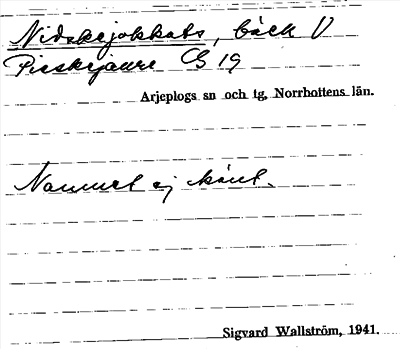 Nidskejokkats, bäck V
Pieskejaure C5 19
Arjeplogs sn och tg, Norrbottens län.
Namnet ej känt.
Sigvard Wallström, 1941.